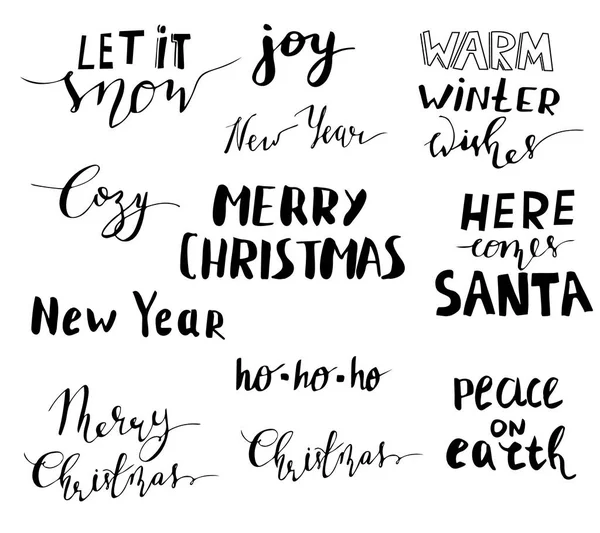 LET iT
snow
joy
New Year
WARM
WiNTER
wishes
Cozy
MERRY
CHRISTMAS
HERE
comes
SANTA
New YeaR
ho•ho•ho
Merry
Christmas
Christmas
peace
ON
earth